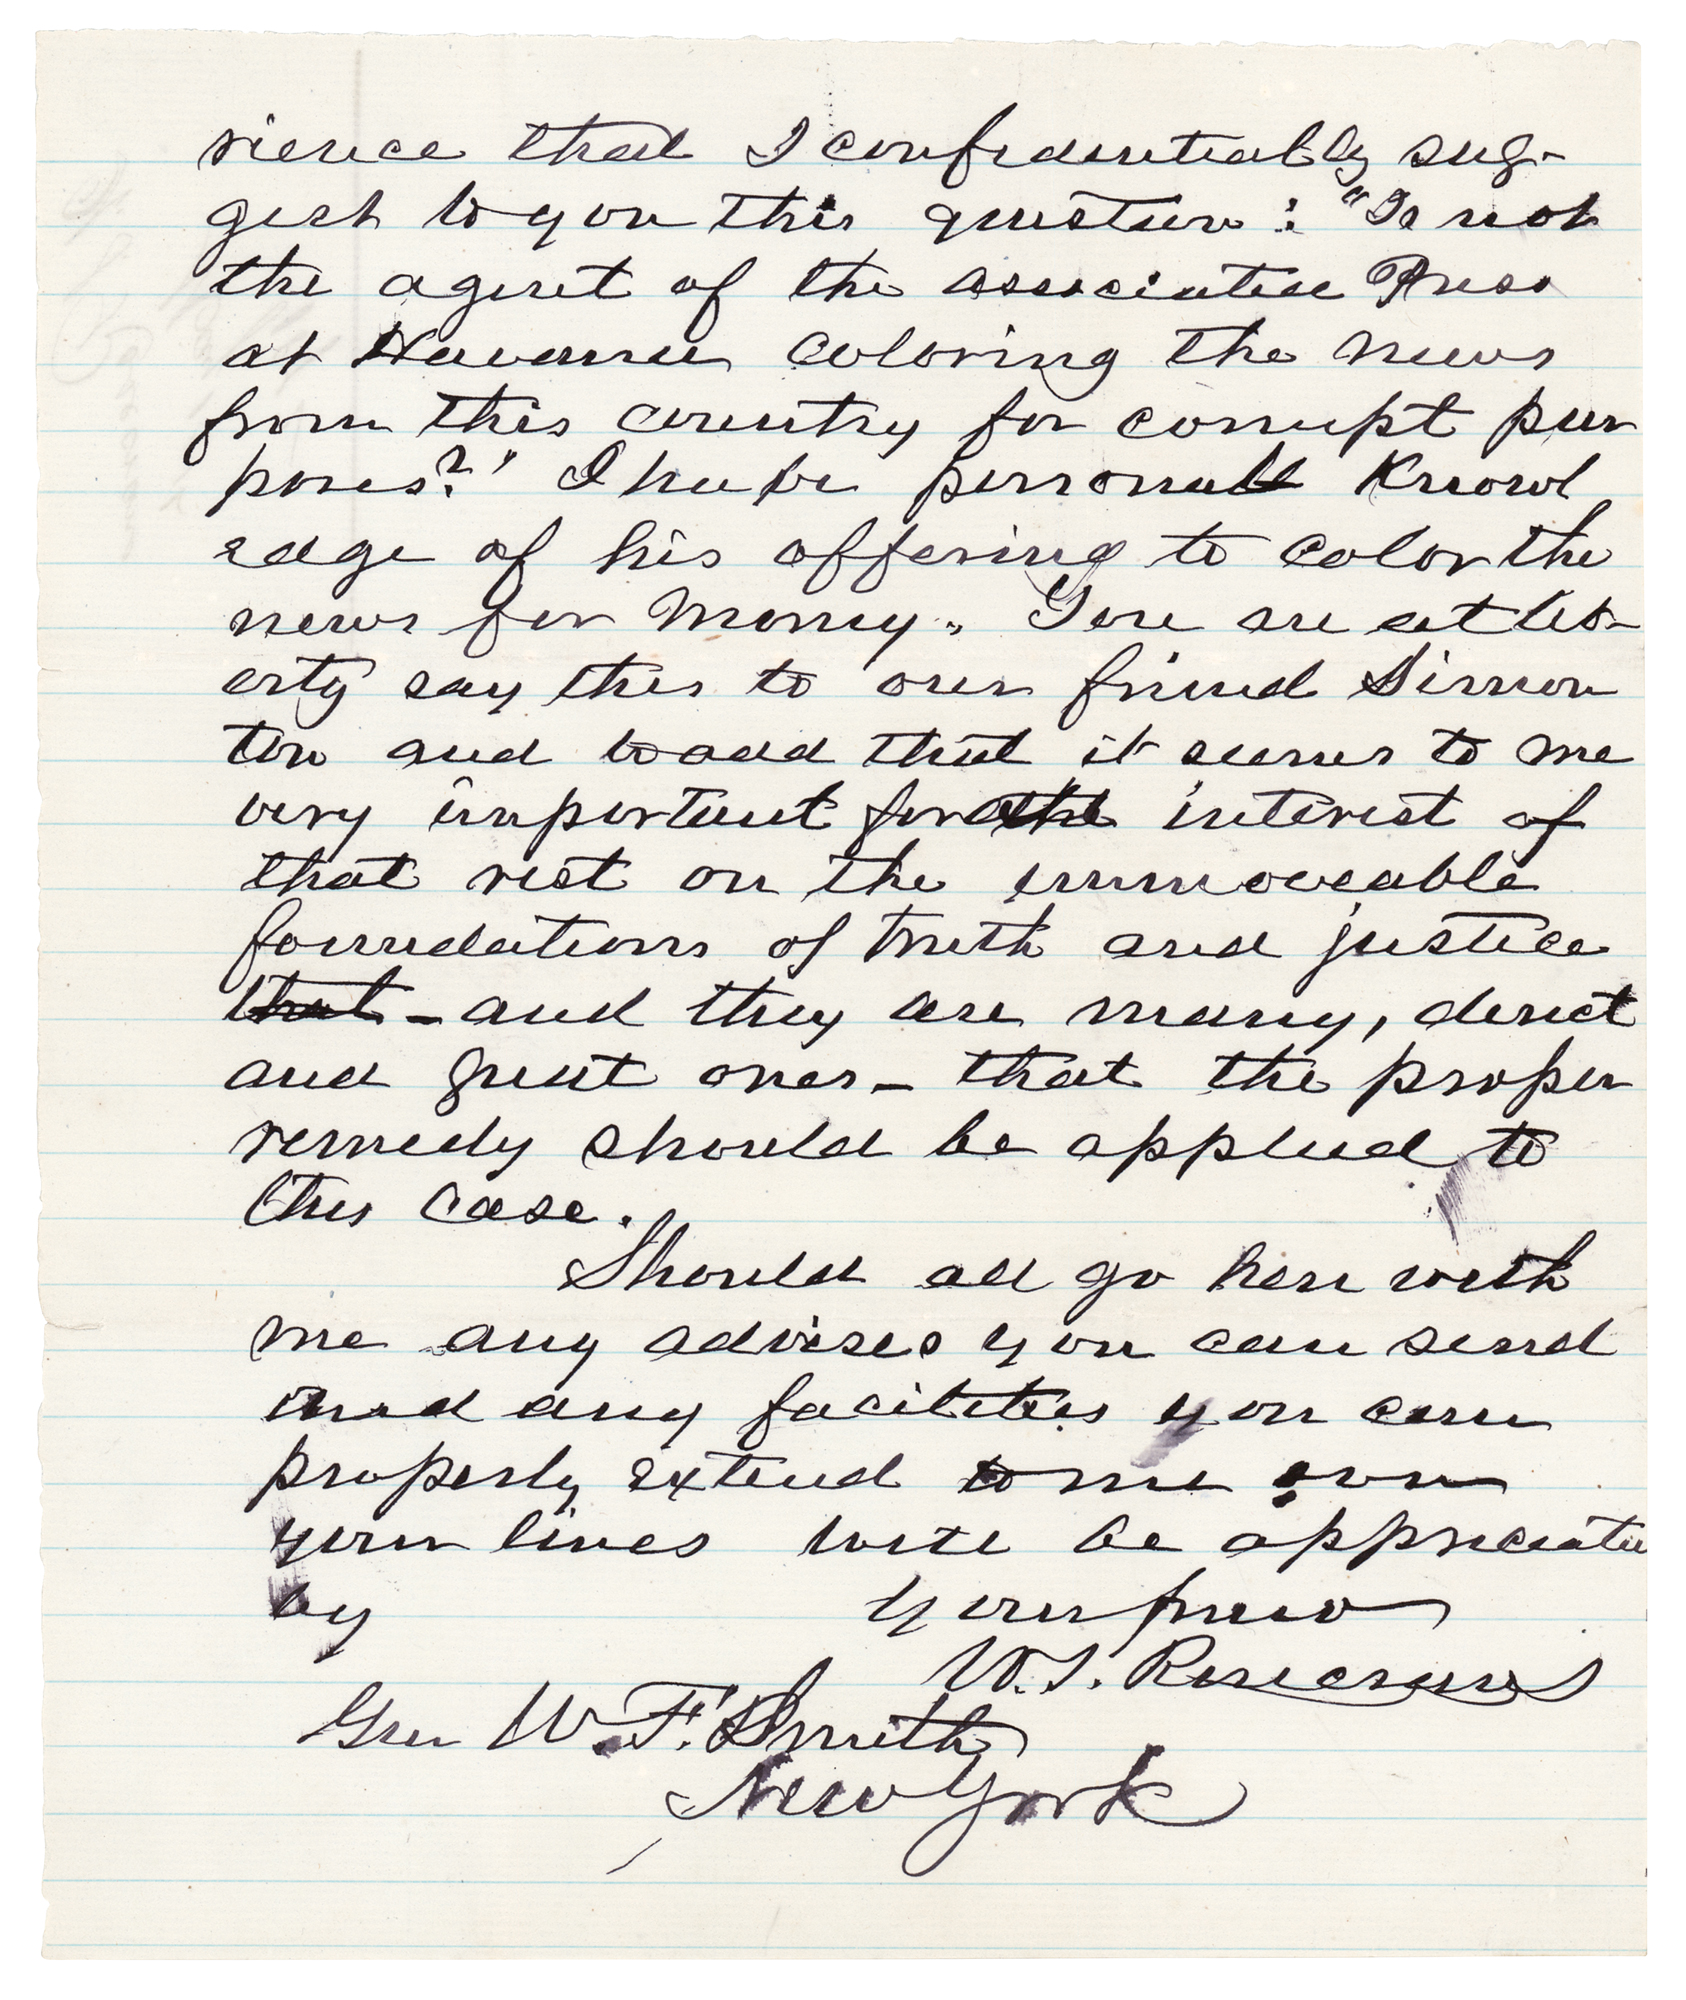 rience that I confidentially sug-
gest to you this question: "Is not
the agent of the associated Press
at Havana coloring the news
from this country for corrupt pur
poses?" I have personal Knowl
edge of his offering to color the
news for money. You are at lib-
erty say this to our friend Simon
ton and to add that it seems to me
very important for the interest of
that rest on the immoveable
foundations of truth and justice
that - and they are many, direct
and great ones - that the proper
remedy should be applied to
this case.
Should all go here with
me any advises you can send
and any facilities you can
properly extend to me over
your lines will be appreciated
by Yours
W. S. Rosecrans
Gen W. F. Smith
New York